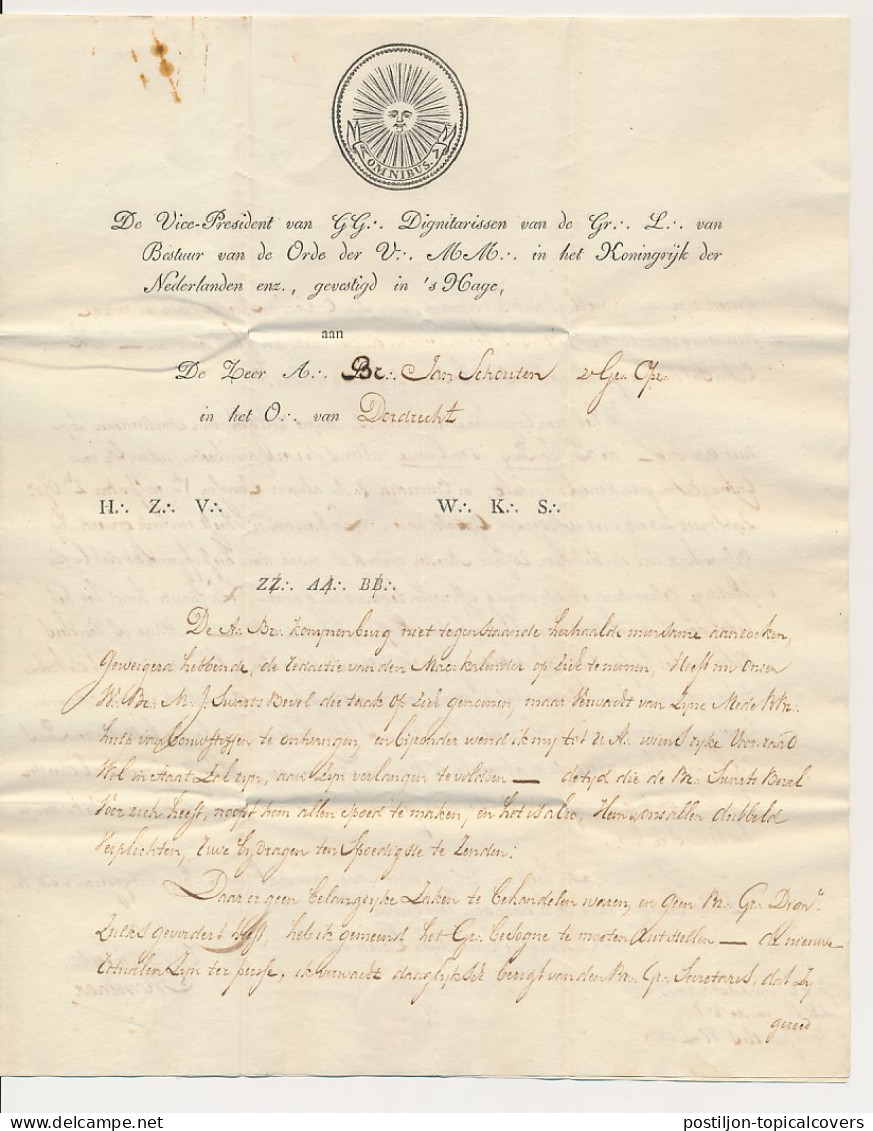 OMNIBUS.
De Vice-President van GG∴ Dignitarissen van de Gr∴ L∴ van
Bestuur van de Orde der V∴ MM∴ in het Koningrijk der
Nederlanden enz., gevestigd in 's Hage,
aan
De Zeer A∴ Br∴ Jan Schouten 2e Gr∴ Opz∴
in het O∴ van Dordrecht
H∴ Z∴ V∴ W∴ K∴ S∴
ZZ∴ AA∴ BB∴
De A∴ Br∴ Kompenburg niettegenstaande herhaalde minsame aanzoeken,
Geweigerd hebbende, de redactie van den Maç∴ Kalender op Zich te nemen, Heeft nu onzen
W∴ Br∴ M. J. Swarts Bevel die taak op Zich genomen, maar Verwacht van Zyne Mede BBr∴
hulp van bouwstoffen te ontvangen, en bijzonder wend ik my tot U A∴ wiens ryke Voorraad
Wel in staat Zal zyn, aan Zyn verlangen te voldoen — de tyd die de Br∴ Swarts Bevel
Voor zich heeft, noopt hem allen spoed te maken, en het is alzo, Hem en ons allen dubbeld
Verplichten, Uwe bydragen ten Spoedigste te Zenden:
Daar er geen belangryke Zaken te behandelen waren, en geen Br∴ Gr∴ Dign∴
Zulks gevordert heeft, heb ik gemeend het Gr∴ besogne te moeten Uitstellen — de nieuwe
Ritualen Zyn ter perse, ik verwacht daaglyks berigt van den Br∴ Gr∴ Secretaris, dat Zy
gereed
postiljon-topicalcovers